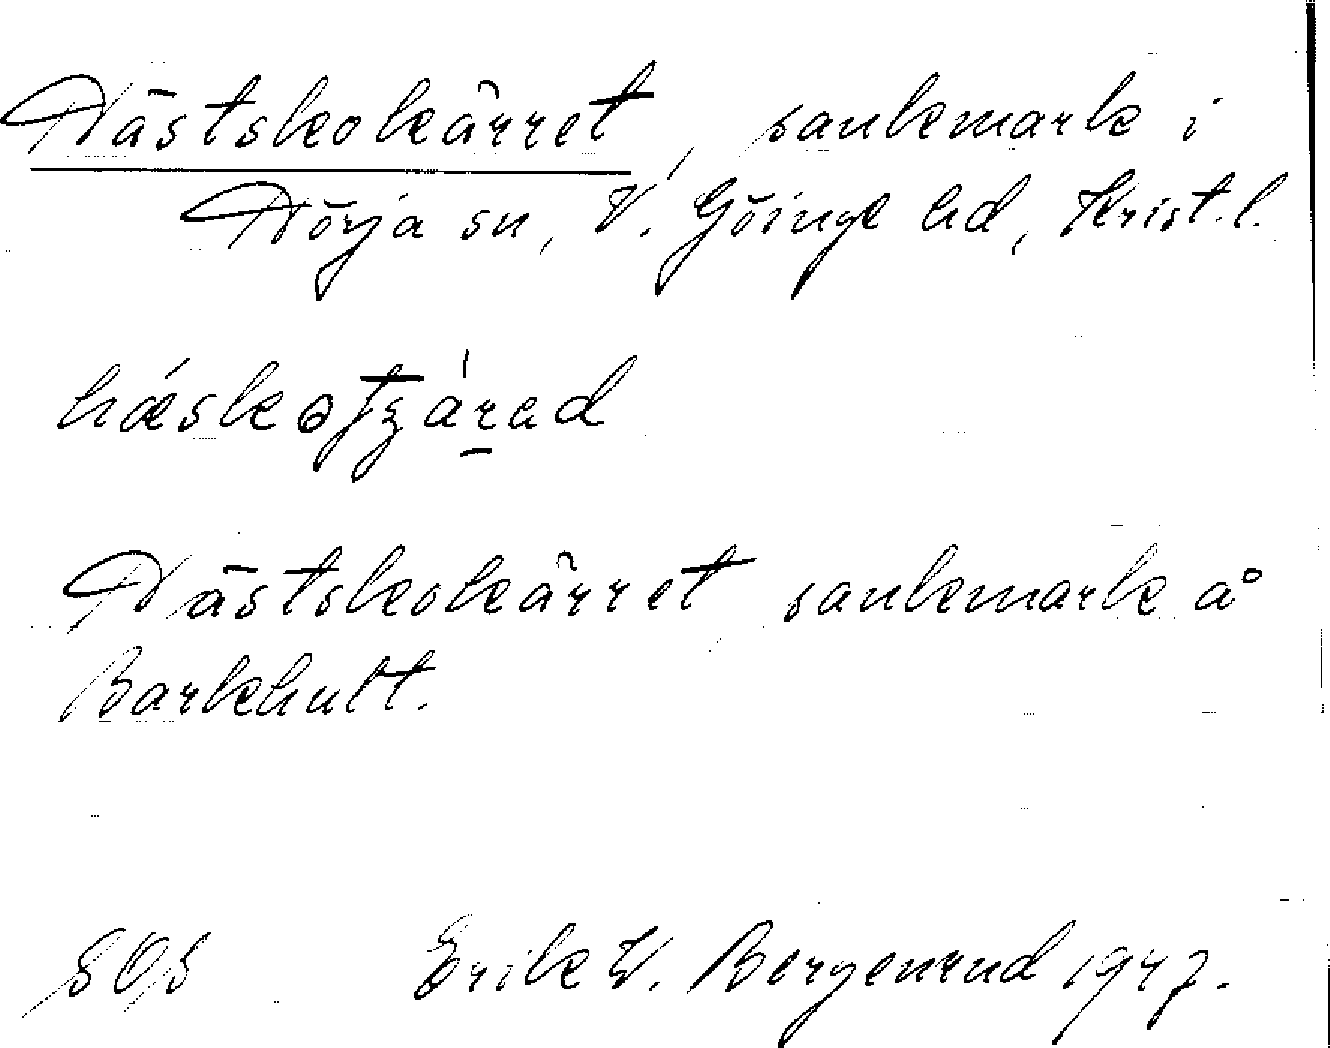 Hästskokärret, sankmark i
Hörja sn, V. Göinge hd, Krist. l.
Hästskokärret sankmark å
Barkhult.
SOS Erik W. Bergenrud 1947.